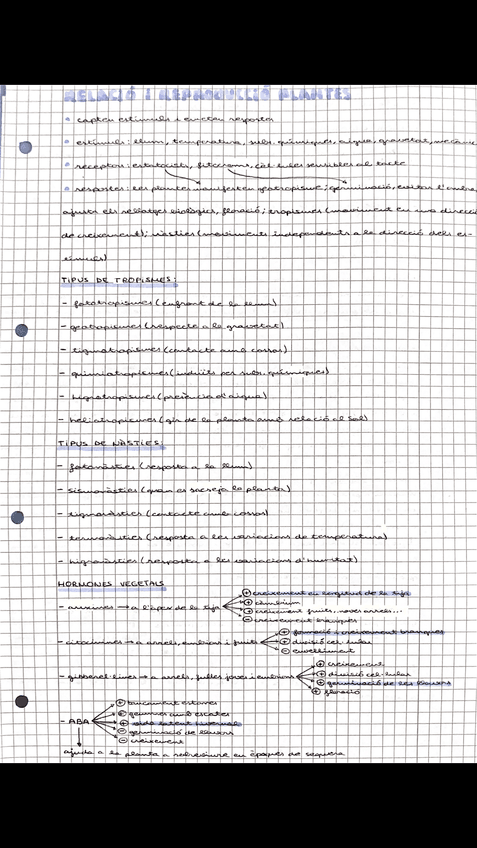 RELACIÓ I REPRODUCCIÓ PLANTES
• capten estímuls i emeten respostes
• estímuls: llum, temperatura, subs. químiques, aigua, gravetat,
• receptors: estatocists, fitocroms, cèl·lules sensibles al tacte
• respostes: les plantes manifesten geotropisme; germinació, evitar l'ombra,
ajustar els rellotges biològics, floració; tropismes (moviment en una direcció
de creixement); nàsties (moviments independents a la direcció dels es-
tímuls)
TIPUS DE TROPISMES:
- fototropismes (enfront de la llum)
- geotropismes (respecte a la gravetat)
- tigmotropismes (contacte amb cossos)
- quimiotropismes (induïts per subs. químiques)
- higrotropismes (presència d'aigua)
- heliotropismes (gir de la planta amb relació al Sol)
TIPUS DE NÀSTIES:
- fotonàsties (resposta a la llum)
- sismonàsties (quan es sacseja la planta)
- tigmonàsties (contacte amb cossos)
- termonàsties (resposta a les variacions de temperatura)
- higronàsties (resposta a les variacions d'humitat)
HORMONES VEGETALS
- auxines → a l'àpex de la tija
⊕ creixement en longitud de la tija
⊕ càmbium
⊕ creixement fruits, noves arrels...
⊖ creixement branques
- citocinines → a arrels, embrions i fruits
⊕ formació i creixement branques
⊕ divisió cel·lular
⊖ envelliment
- giberel·lines → a arrels, fulles joves i embrions
⊕ creixement
⊕ divisió cel·lular
⊕ germinació de les llavors
⊕ floració
- ABA
⊕ tancament estomes
⊕ gemmes amb escates
⊕ vida latent hivernal
⊖ germinació de llavors
⊖ creixement
ajuda a la planta a sobreviure en èpoques de sequera